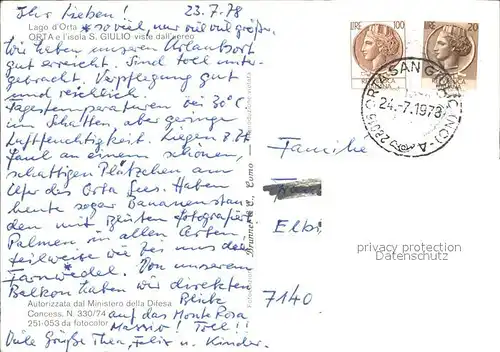 Ihr Lieben! 23.7.78
Lago d'Orta * so viel, nur viel viel größer
ORTA e l'isola S. GIULIO viste dall'aereo
Wir haben unseren Urlaubsort
gut erreicht. Sind toll unter-
gebracht. Verpflegung gut
und reichlich.
Tagestemperaturen bei 30°C
im Schatten aber geringe
Luftfeuchtigkeit. Liegen z.Zt
faul an einem schönen,
schattigen Plätzchen am
Ufer des Orta Sees. Haben
heute sogar Bananenstau
den mit Blüten fotografiert
Palmen in allen Arten
teilweise wie bei uns der
Farnwedel.* Von unserem
Balkon haben wir direkten
Autorizzata dal Ministero della Difesa
Blick
Concess. N. 330/74
auf das Monte Rosa
251-053 da fotocolor
Massiv! Toll!!
Viele Grüße Thea, Felix u. Kinder.
LIRE 100
LIRE 20
ORTA SAN GIULIO (NO) - A -
24-7.1978
Familie
Elbi
7140
copyright protected
Datenschutz